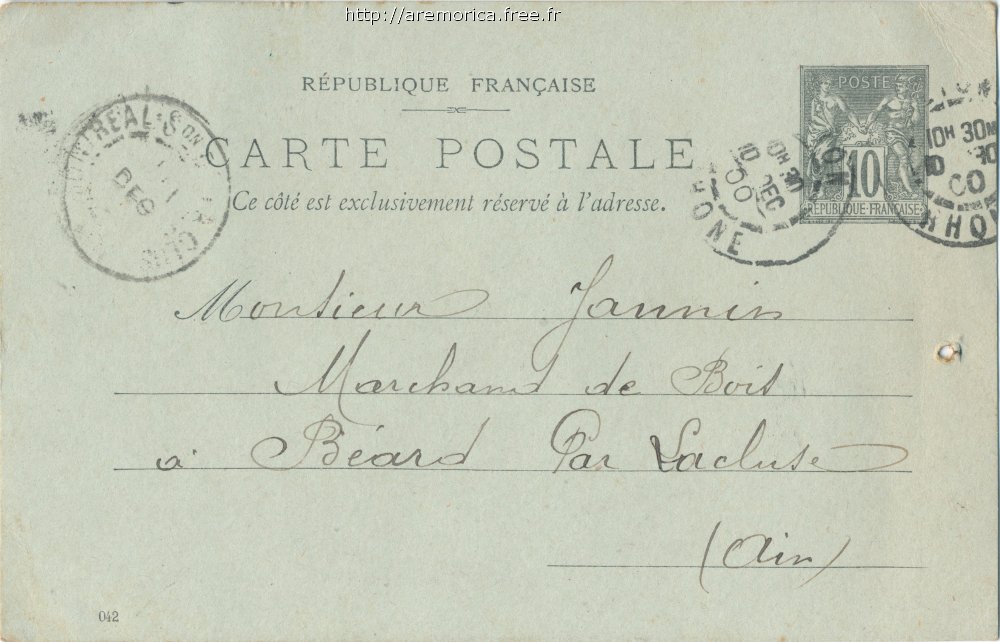 http://aremorica.free.fr
RÉPUBLIQUE FRANÇAISE
CARTE POSTALE
Ce côté est exclusivement réservé à l'adresse.
POSTE
10
RÉPUBLIQUE FRANÇAISE
MONTREAL
DEC
10H 30
10 DEC
00
RHONE
10H 30
10
00
RHO
Monsieur Jannin
Marchand de Bois
à Béard Par Lacluse
(Ain)
042